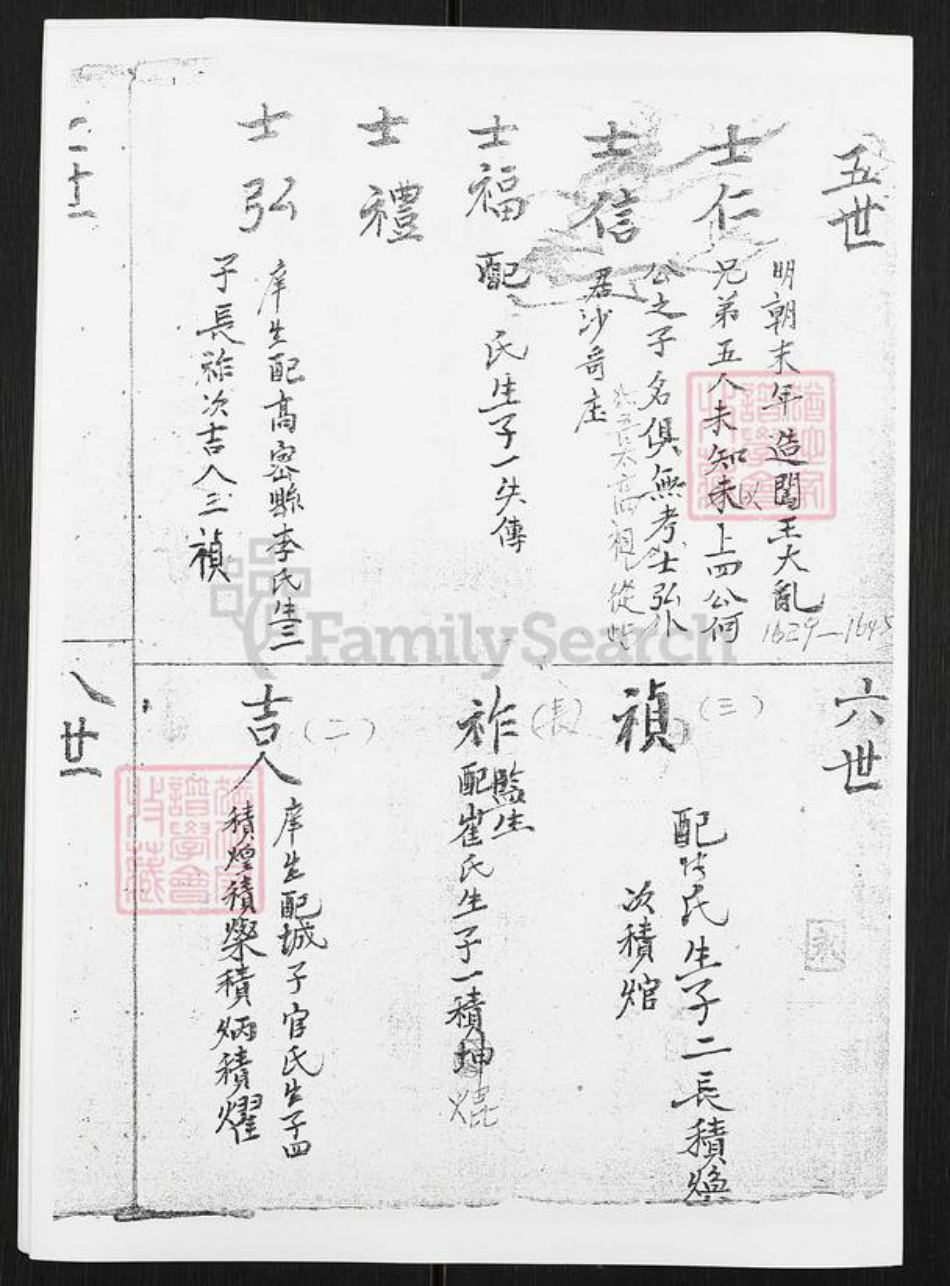 五世
士仁
明朝末年造闖王大亂
1629—1645
兄弟五人未知以上四公何
士信
公之子名俱無考士弘外
居沙奇庄
士福
配 氏生子一失傳
士禮
士弘
庠生配高密縣李氏生三
子長祚次吉人三禎
六世
禎
(三)
配 氏生子二長積煥
次積焰
祚
(長)
監生
配崔氏生子一積坤
焜
吉人
(二)
庠生配城子官氏生子四
積煌積燦積炳積耀
二十一
八
廿一
FamilySearch